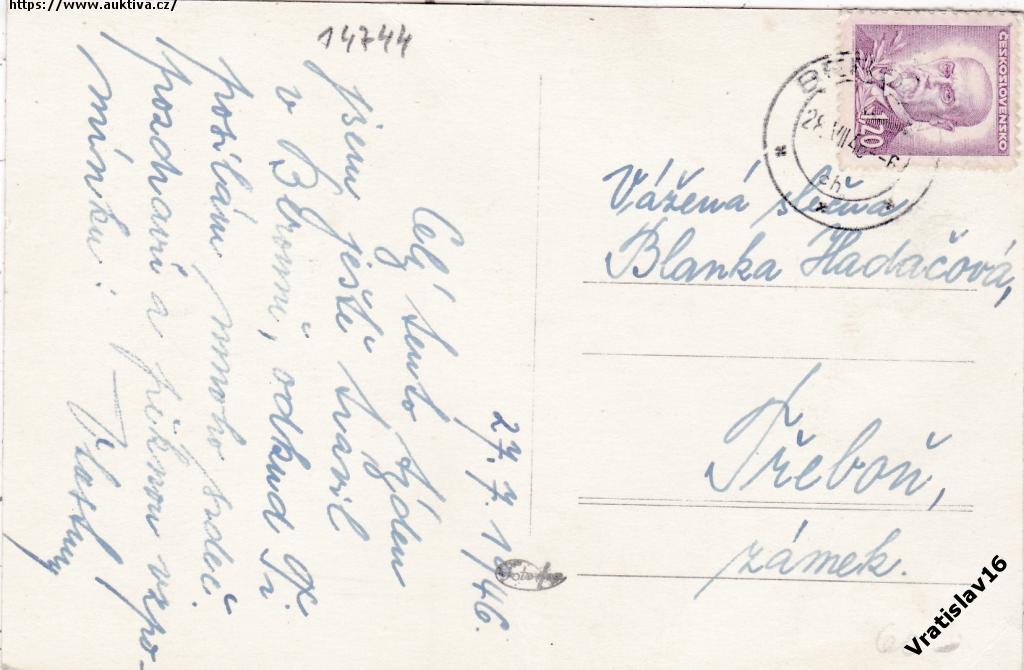 https://www.auktiva.cz/
14744
27. 7. 1946.
Celý tento týden
jsem ještě trávil
v Berouně, odkud Ti
posílám mnoho srdeč.
pozdravů a pěknou vzpo-
mínku!
ČESKOSLOVENSKO
1.20
28. VII 46
Vážená slečna
Blanka Hadačová,
Třeboň,
zámek.
Vratislav16